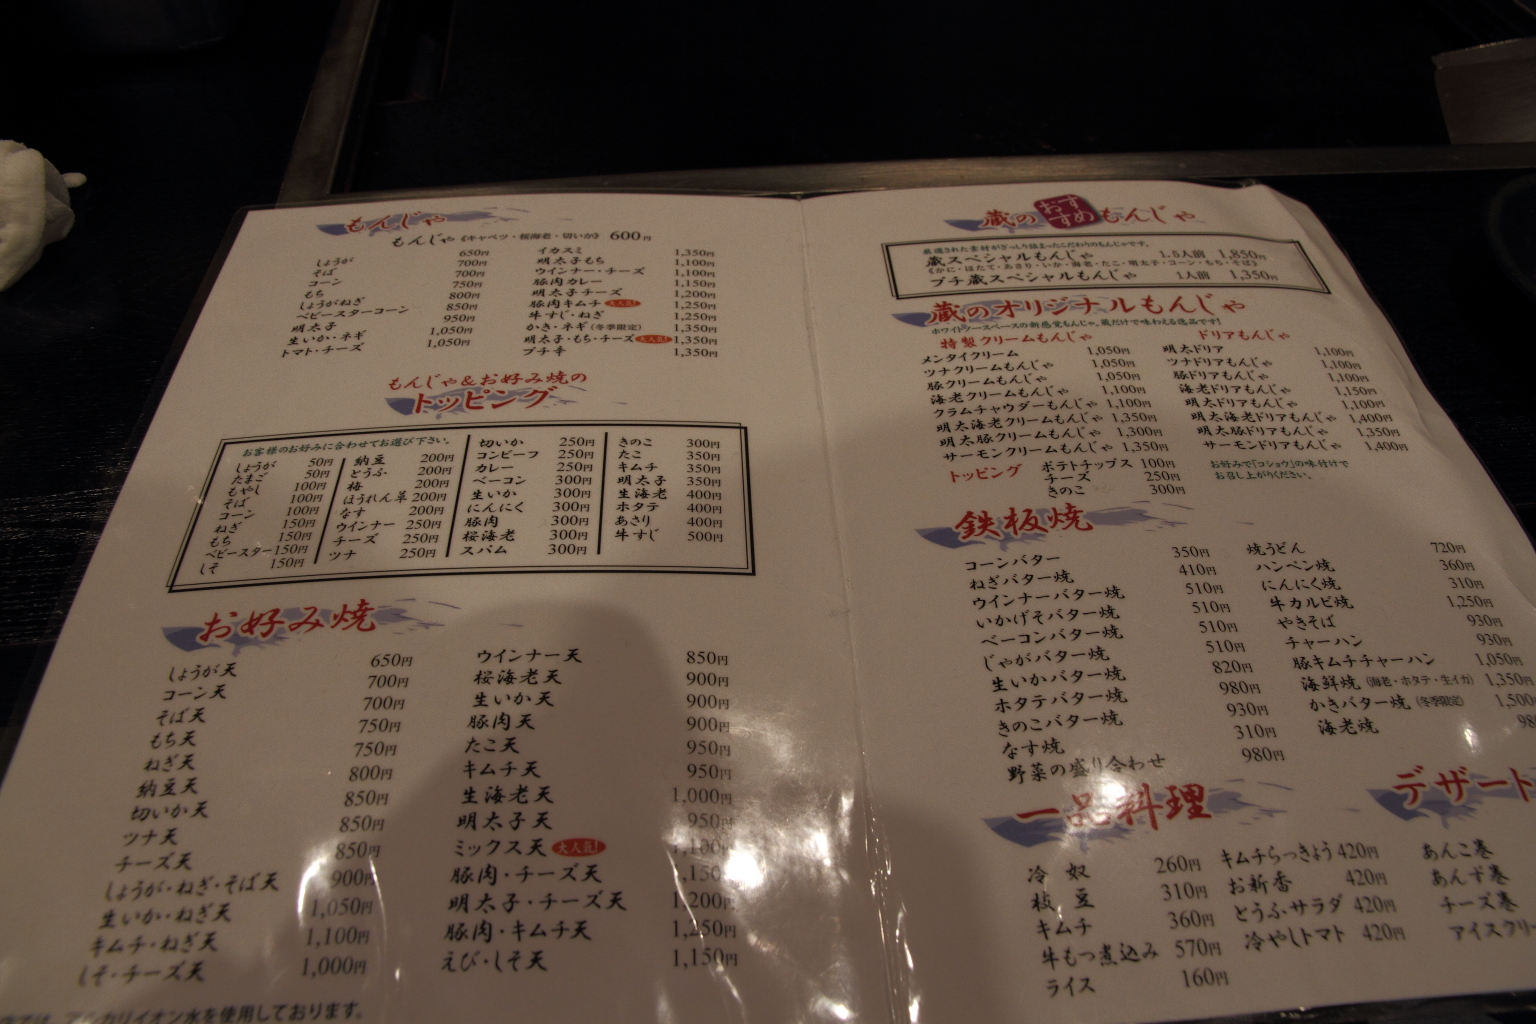 もんじゃ
もんじゃ《キャベツ・桜海老・切いか》 600円
しょうが 650円
そば 700円
コーン 700円
もち 750円
しょうがねぎ 800円
ベビースターコーン 850円
明太子 950円
生いか・ネギ 1,050円
トマト・チーズ 1,050円
イカスミ 1,350円
明太子もち 1,100円
ウインナー・チーズ 1,100円
豚肉カレー 1,150円
明太子チーズ 1,200円
豚肉キムチ 大人気! 1,250円
牛すじ・ねぎ 1,250円
かき・ネギ(冬季限定) 1,350円
明太子・もち・チーズ 大人気! 1,350円
プチ辛 1,350円
もんじゃ&お好み焼の
トッピング
お客様のお好みに合わせてお選び下さい。
しょうが 50円
たまご 50円
もやし 100円
そば 100円
コーン 100円
ねぎ 150円
もち 150円
ベビースター 150円
しそ 150円
納豆 200円
とうふ 200円
梅 200円
ほうれん草 200円
なす 200円
ウインナー 250円
チーズ 250円
ツナ 250円
切いか 250円
コンビーフ 250円
カレー 250円
ベーコン 300円
生いか 300円
にんにく 300円
豚肉 300円
桜海老 300円
スパム 300円
きのこ 300円
たこ 350円
キムチ 350円
明太子 350円
生海老 400円
ホタテ 400円
あさり 400円
牛すじ 500円
お好み焼
しょうが天 650円
コーン天 700円
そば天 700円
もち天 750円
ねぎ天 750円
納豆天 800円
切いか天 850円
ツナ天 850円
チーズ天 850円
しょうが・ねぎ・そば天 900円
生いか・ねぎ天 1,050円
キムチ・ねぎ天 1,100円
しそ・チーズ天 1,000円
ウインナー天 850円
桜海老天 900円
生いか天 900円
豚肉天 900円
たこ天 950円
キムチ天 950円
生海老天 1,000円
明太子天 950円
ミックス天 大人気! 1,100円
豚肉・チーズ天 1,150円
明太子・チーズ天 1,200円
豚肉・キムチ天 1,250円
えび・しそ天 1,150円
アルカリイオン水を使用しております。
蔵のおすすめもんじゃ
厳選された素材がぎっしり詰まったこだわりのもんじゃです。
蔵スペシャルもんじゃ 1.5人前 1,850円
《かに・ほたて・あさり・いか・海老・たこ・明太子・コーン・もち・そば》
プチ蔵スペシャルもんじゃ 1人前 1,350円
蔵のオリジナルもんじゃ
ホワイトソースベースの新感覚もんじゃ。蔵だけで味わえる逸品です!
特製クリームもんじゃ
メンタイクリーム 1,050円
ツナクリームもんじゃ 1,050円
豚クリームもんじゃ 1,050円
海老クリームもんじゃ 1,100円
クラムチャウダーもんじゃ 1,100円
明太海老クリームもんじゃ 1,350円
明太豚クリームもんじゃ 1,300円
サーモンクリームもんじゃ 1,350円
ドリアもんじゃ
明太ドリア 1,100円
ツナドリアもんじゃ 1,100円
豚ドリアもんじゃ 1,100円
海老ドリアもんじゃ 1,150円
明太ドリアもんじゃ 1,100円
明太海老ドリアもんじゃ 1,400円
明太豚ドリアもんじゃ 1,350円
サーモンドリアもんじゃ 1,400円
トッピング
ポテトチップス 100円
チーズ 250円
きのこ 300円
お好みで「コショウ」の味付けで
お召し上がりください。
鉄板焼
コーンバター 350円
ねぎバター焼 410円
ウインナーバター焼 510円
いかげそバター焼 510円
ベーコンバター焼 510円
じゃがバター焼 510円
生いかバター焼 820円
ホタテバター焼 980円
きのこバター焼 930円
なす焼 310円
野菜の盛り合わせ 980円
焼うどん 720円
ハンペン焼 360円
にんにく焼 310円
牛カルビ焼 1,250円
やきそば 930円
チャーハン 930円
豚キムチチャーハン 1,050円
海鮮焼(海老・ホタテ・生イカ) 1,350円
かきバター焼(冬季限定) 1,500
海老焼 98
一品料理
冷奴 260円
枝豆 310円
キムチ 360円
牛もつ煮込み 570円
ライス 160円
キムチらっきょう 420円
お新香 420円
とうふサラダ 420円
冷やしトマト 420円
デザート
あんこ巻
あんず巻
チーズ巻
アイスクリー